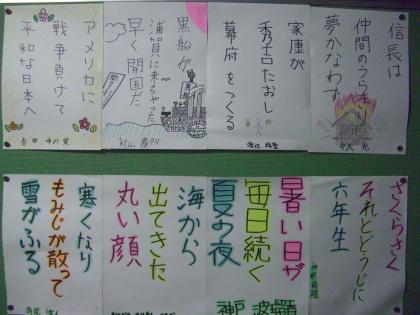 信長は
仲間のうらぎり
夢かなわず
家康が
秀吉たおし
幕府をつくる
黒船が
浦賀に来ちゃった
早く開国だ
アメリカに
戦争負けて
平和な日本へ
さくらさく
それとどうじに
六年生
暑い日が
毎日続く
夏の夜
海から
出てきた
丸い顔
寒くなり
もみじが散って
雪がふる